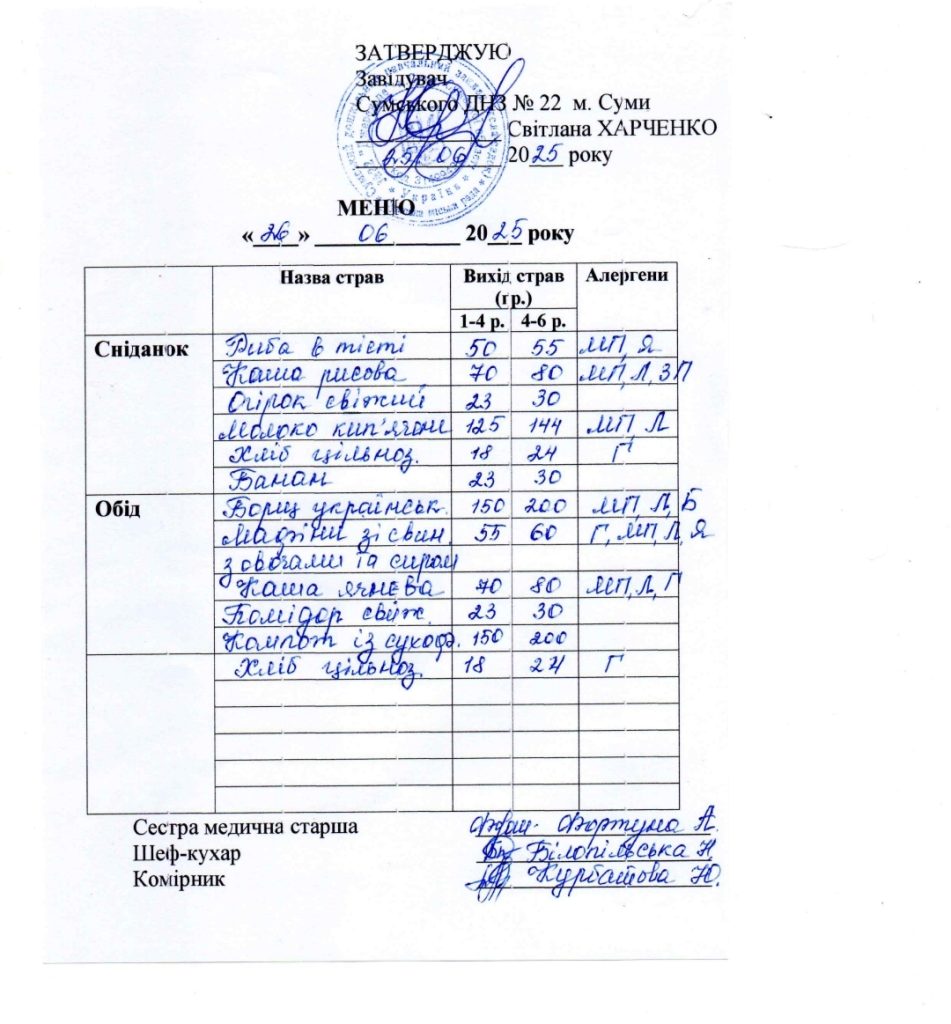 ЗАТВЕРДЖУЮ
Завідувач
Сумського ДНЗ № 22 м. Суми
Світлана ХАРЧЕНКО
25 06 2025 року
МЕНЮ
«26» 06 2025 року
Назва страв Вихід страв (гр.) Алергени
1-4 р. 4-6 р.
Сніданок Риба в тісті 50 55 МП, Я
Каша рисова 70 80 МП, Л, ЗП
Огірок свіжий 23 30
Молоко кип'ячене 125 144 МП Л
Хліб цільноз. 18 24 Г
Банан 23 30
Обід Борщ українськ. 150 200 МП, Л, Б
Мафіни зі свин. 55 60 Г, МП, Л, Я
з овочами та сиром
Каша ячнева 70 80 МП, Л, Г
Помідор свіж. 23 30
Компот із сухоф. 150 200
Хліб цільноз. 18 24 Г
Сестра медична старша Фортуна А.
Шеф-кухар Білопільська Н.
Комірник Курбатова Ю.